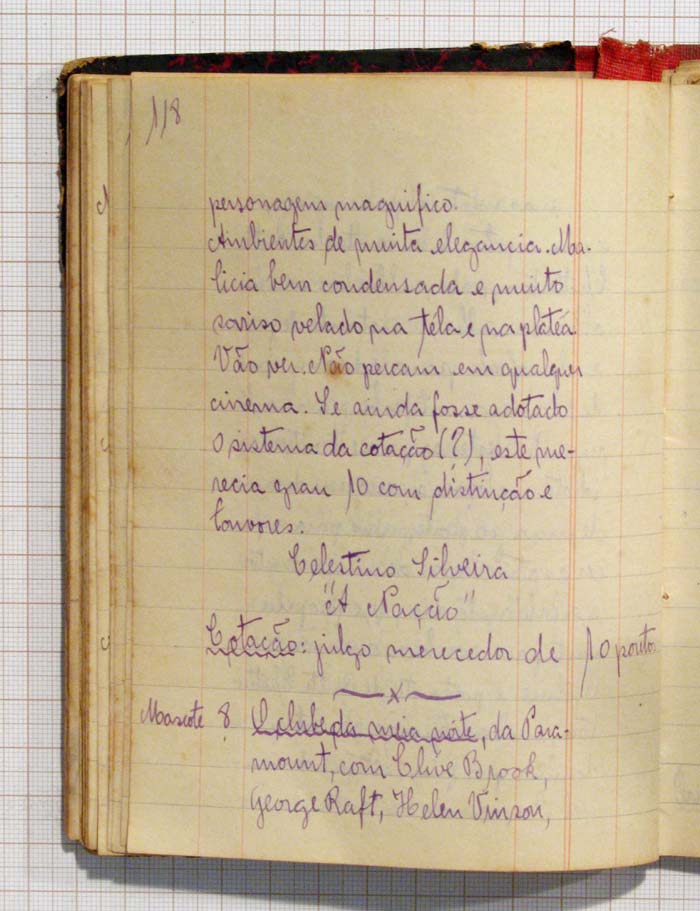 118
personagem magnifico.
Ambientes de muita elegancia. Ma-
licia bem condensada e muito
sorriso velado na téla e na platéa
Vão ver. Não percam, em qualquer
cinema. Se ainda fosse adotado
o sistema da cotação (?), este me-
recia grau 10 com distinção e
louvores.
Celestino Silveira
"A Nação"
Cotação: julgo merecedor de 10 pontos
x
Mascote 8 O clube da meia noite, da Para-
mount, com Clive Brook,
George Raft, Helen Vinson,